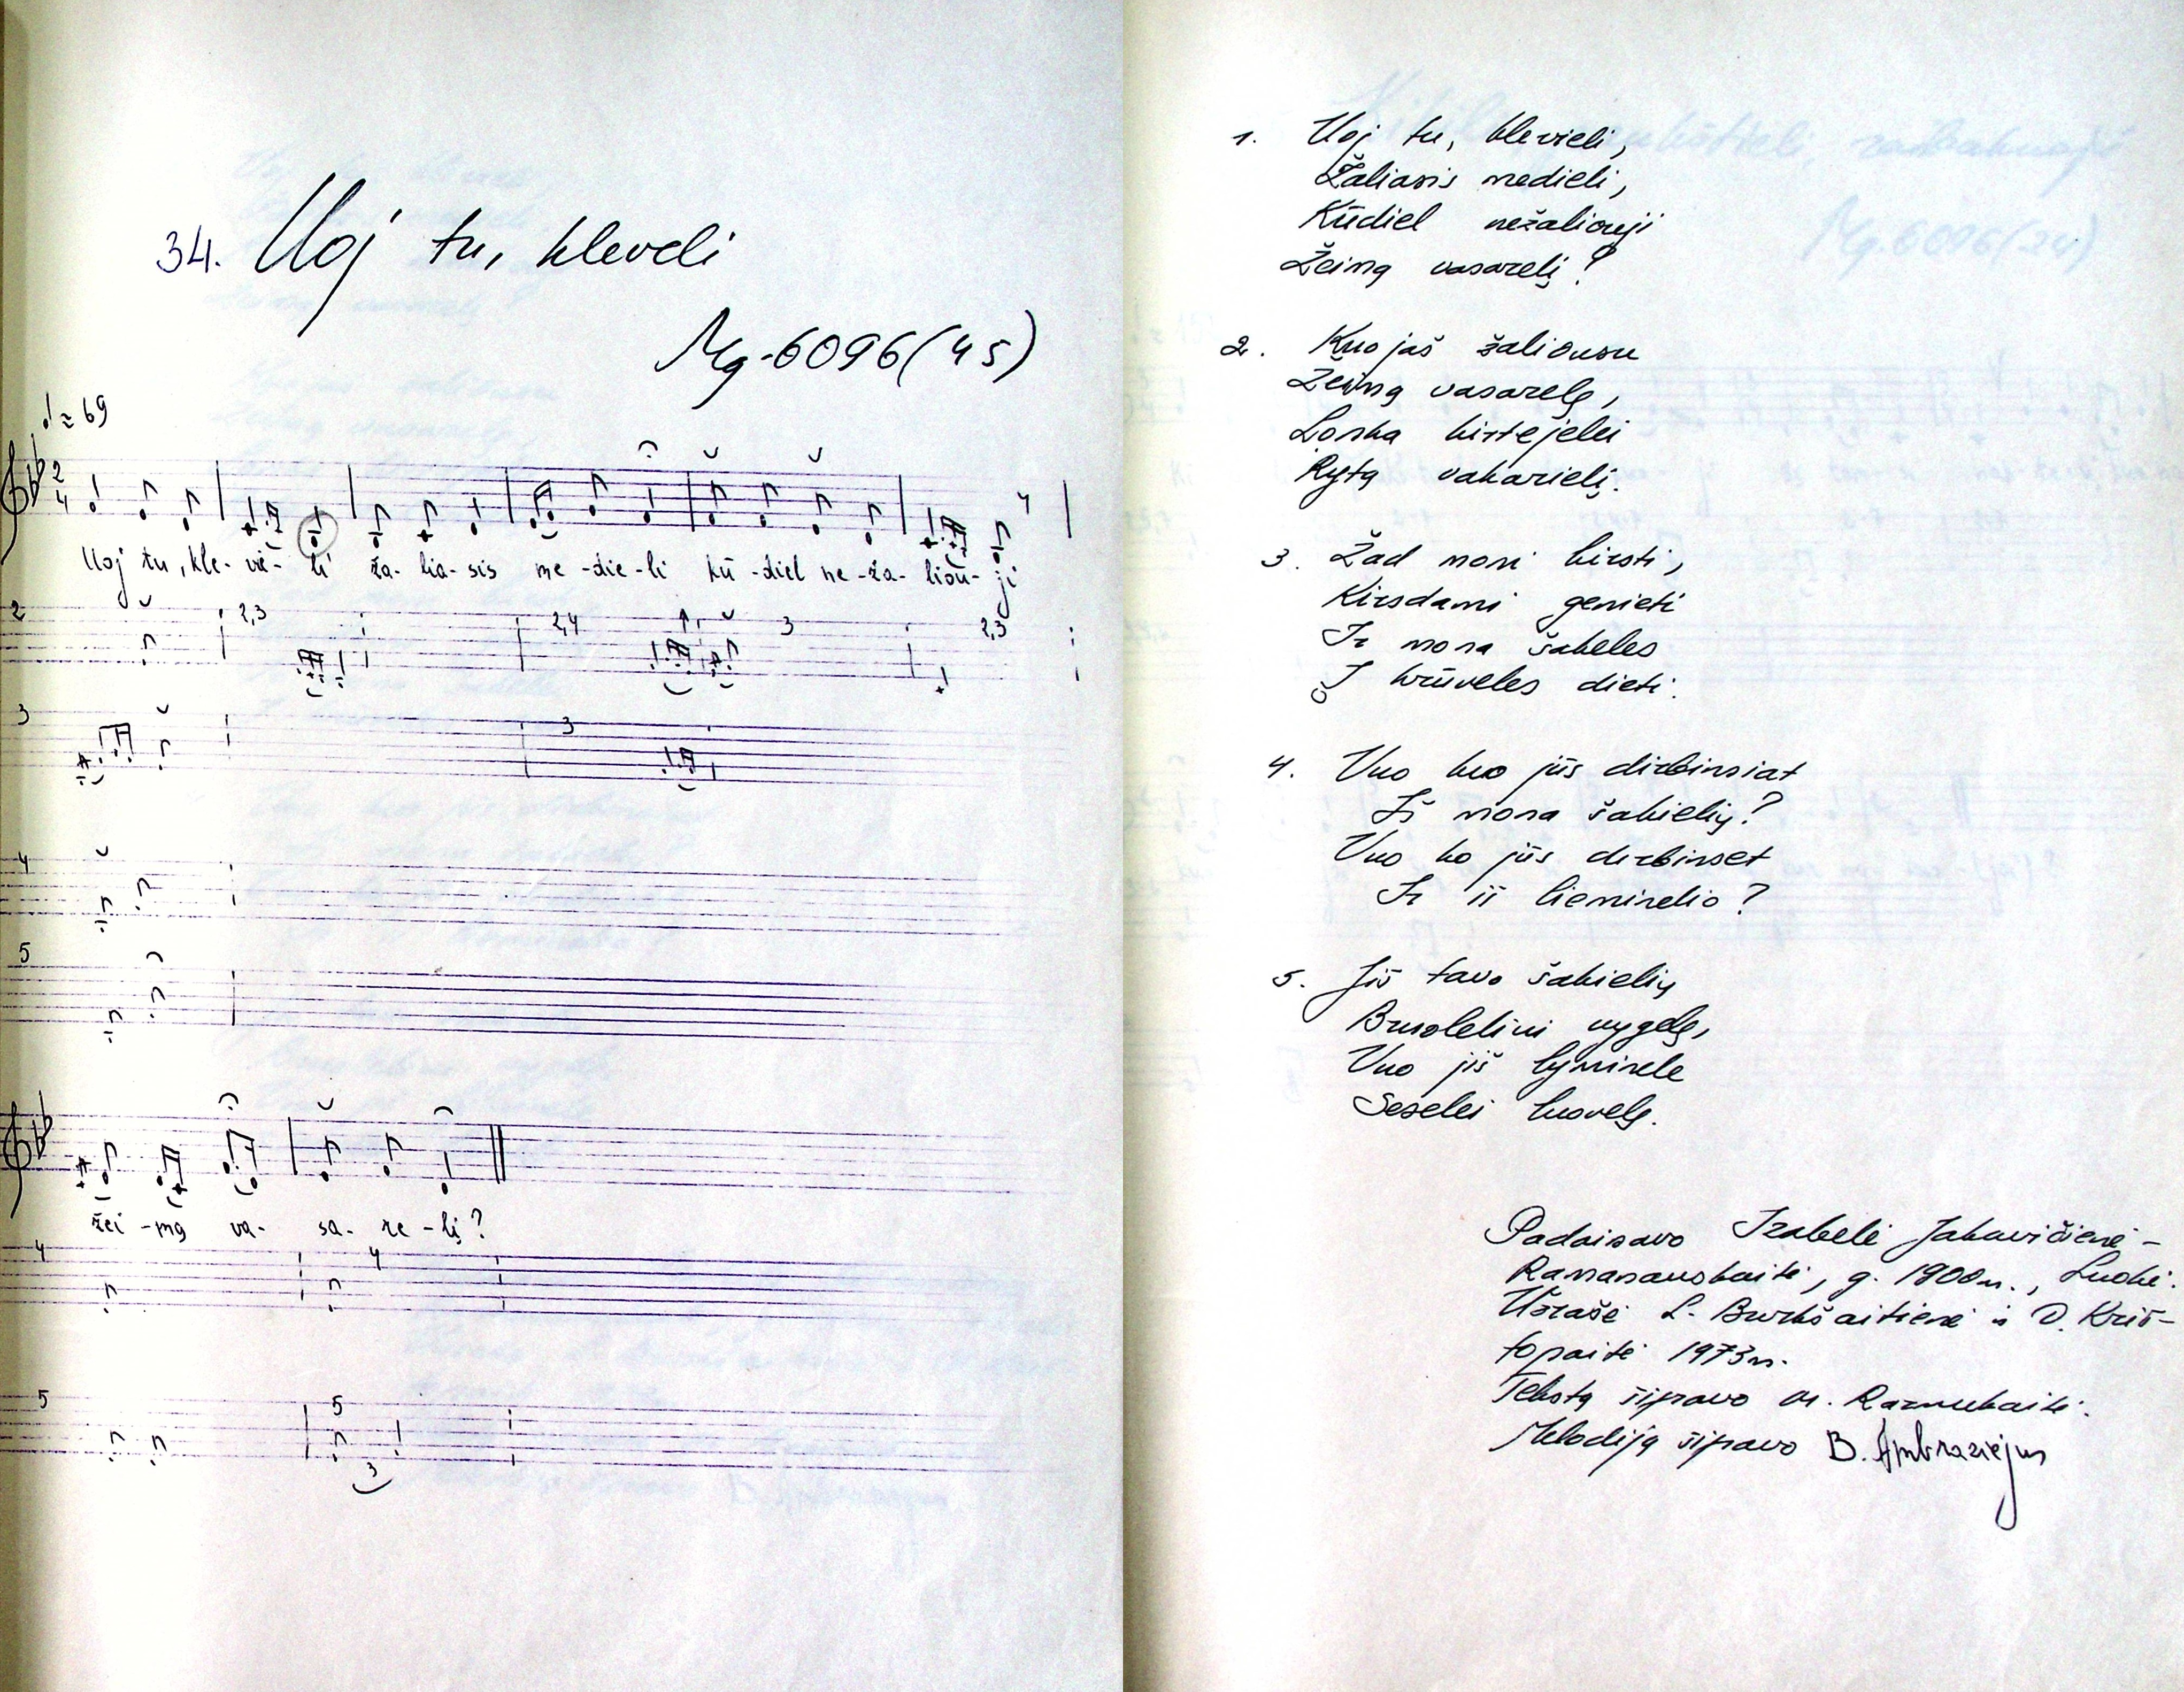 34. Uoj tu, kleveli
Mg-6096(45)
♩≈69
2
4
Uoj tu, kle- vie- li ža- lia- sis me -die- li kū -diel ne -ža- liou- ji
2 2,3 2,4 3 2,3
3 3
4
5
žei -mą va- sa- re -lį?
4 4
5 5
3
1. Uoj tu, klevieli,
Žaliasis medieli,
Kūdiel nežaliouji
Žeimą vasarelį?
2. Kuo jaš žaliousu
Žeimą vasarelę,
Lonka kirtejelei
Rytą vakarielį.
3. Žad moni kirsti,
Kirsdami genieti
Ir mona šakeles
Į krūveles dieti.
4. Vuo kuo jūs dirbinsiat
Iš mona šakielių?
Vuo ko jūs dirbinset
Ir iš lieminelio?
5. Jiš tavo šakielių
Bruolelini vygelę,
Vuo jiš lyminele
Seselei luovelę.
Padainavo Izabelė Jakavičienė-
Ramanauskaitė, g. 1900m., Luokė.
Užrašė L. Burkšaitienė ir D. Kriš-
topaitė 1973m.
Tekstą šifravo M. Razmukaitė.
Melodiją šifravo B. Ambraziejus